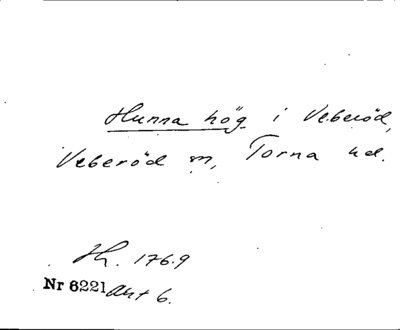 Hunna hög i Veberöd,
Veberöd sn, Torna hd.
Hh. 176.9
Nr 6221 Ant 6.